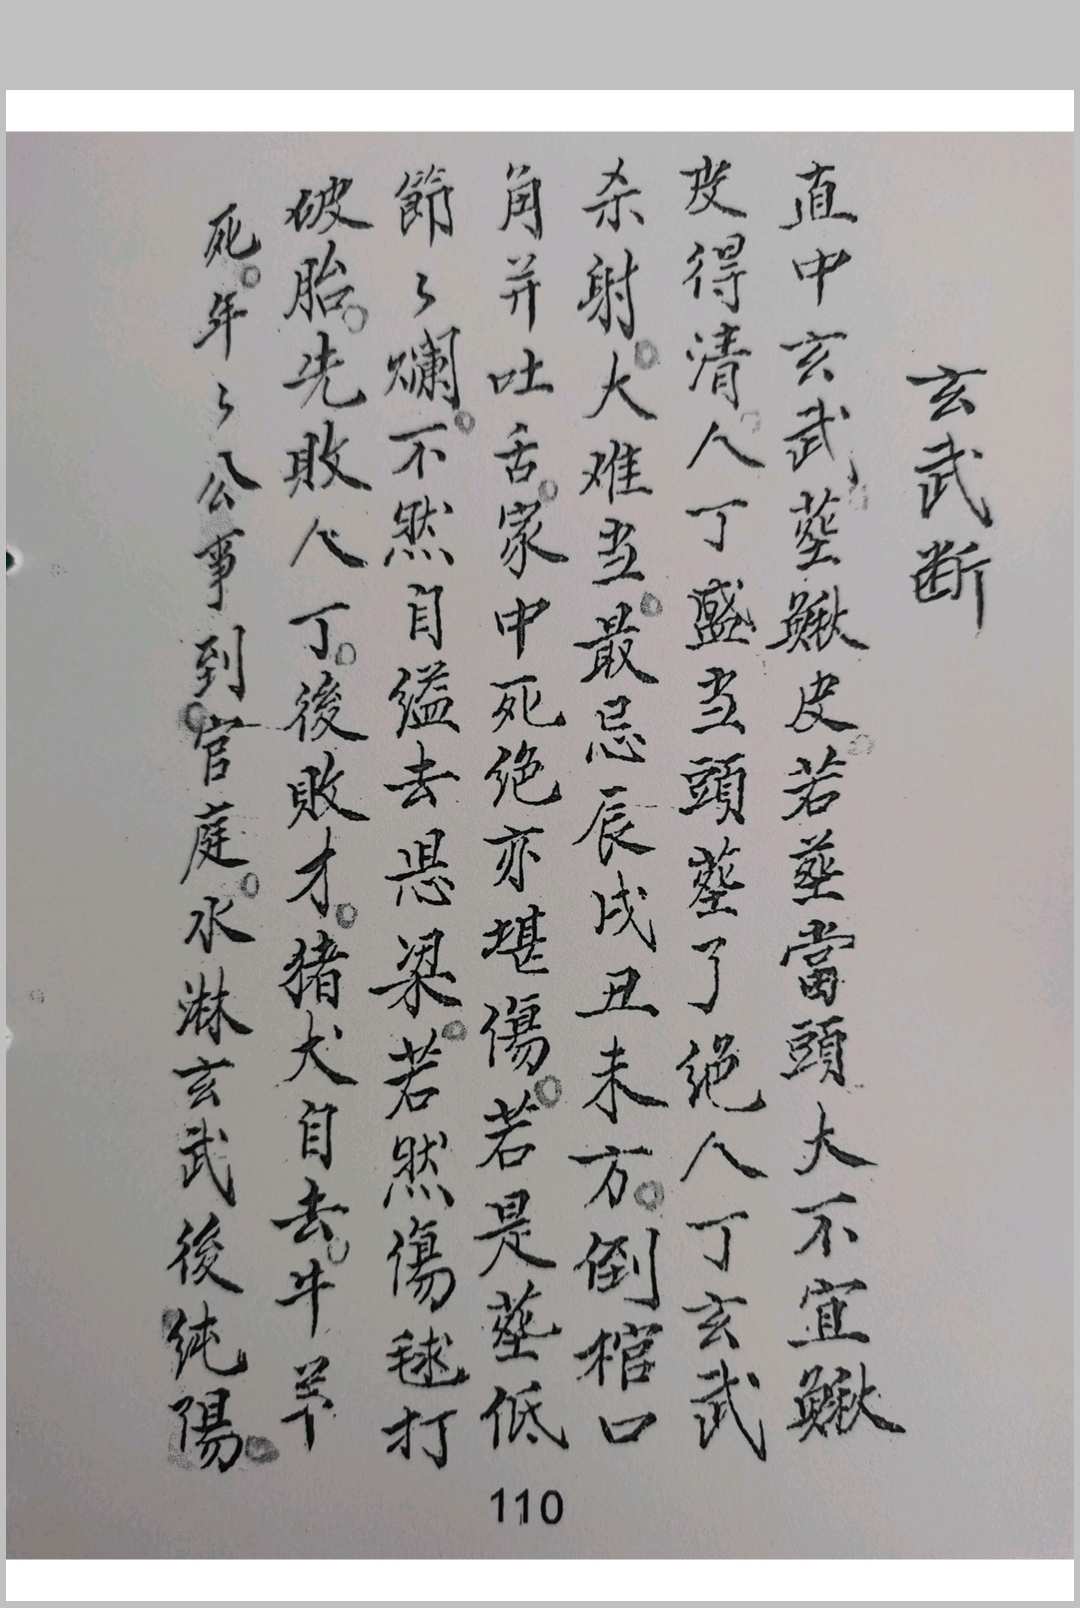 玄武断
直中玄武塋鰍皮。若塋當頭大不宜鰍
皮得清。人丁盛当頭塋了絶人丁玄武
杀射。大难当。最忌辰戌丑未方。倒棺口
角并吐舌。家中死绝亦堪傷。若是塋低
節〻爛。不然自缢去恳梁。若然傷毬打
破胎。先敗人丁。後敗才。猪犬自去。牛羊
死。年〻公事到官庭。水淋玄武後純陽。
110